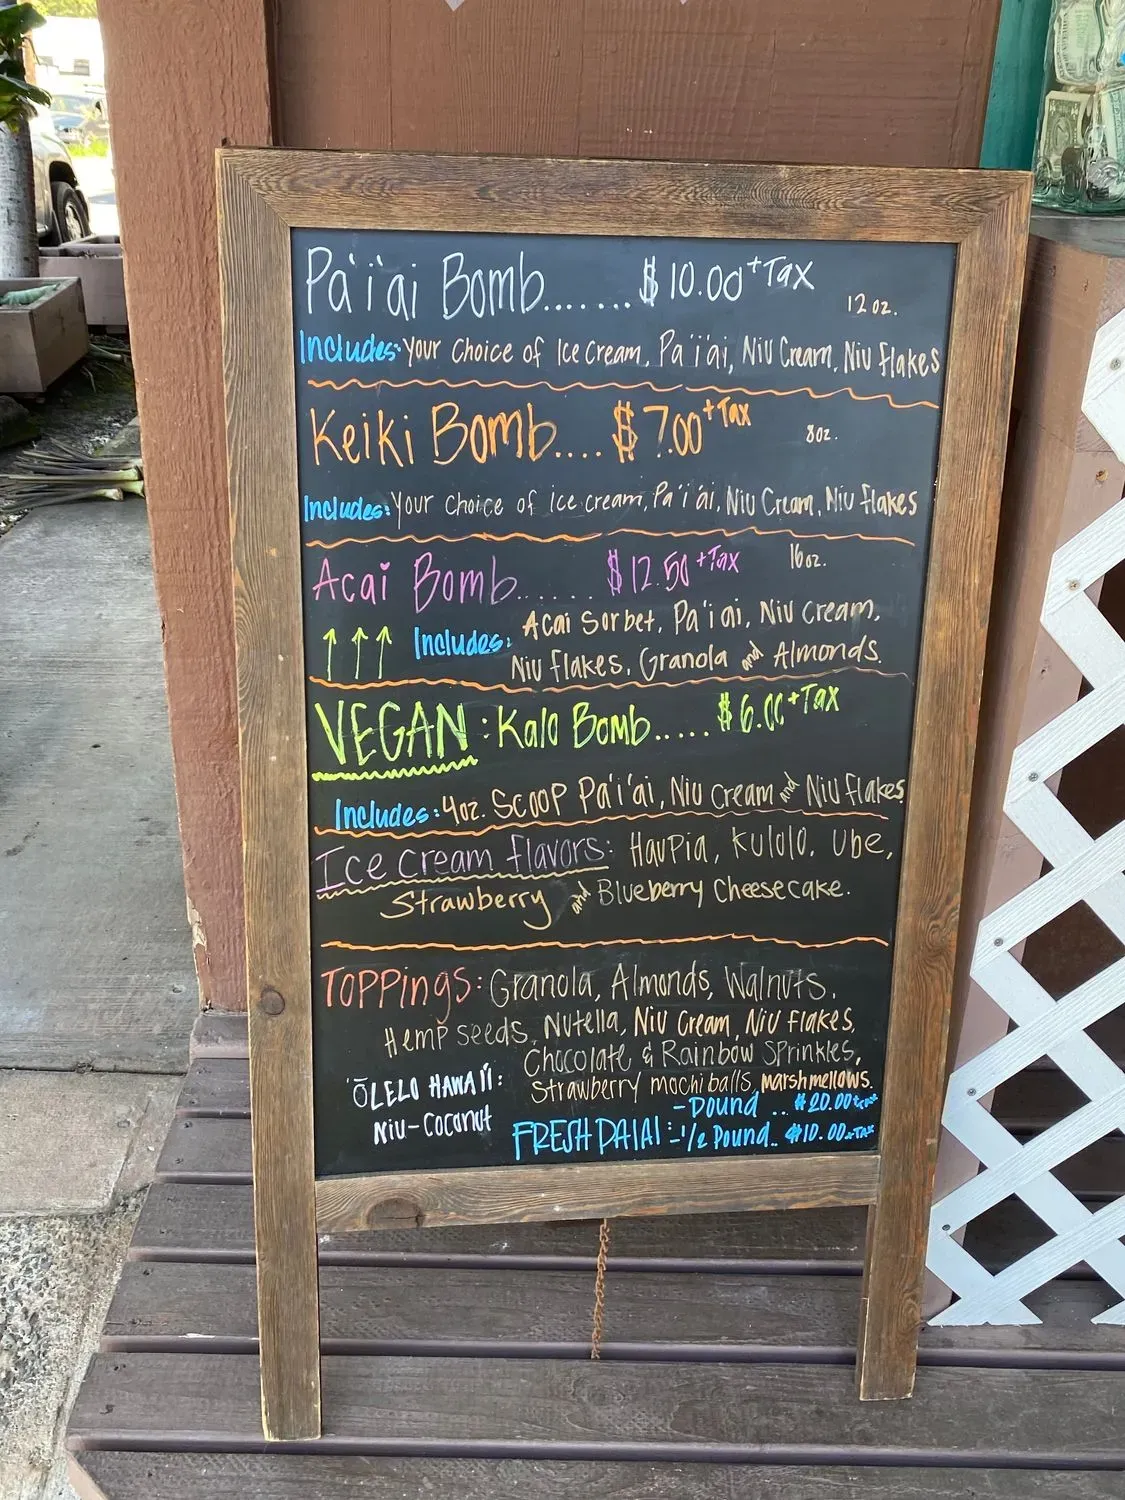 Pa'i'ai Bomb....... $10.00 + Tax
12 oz.
Includes: Your Choice of Ice Cream, Pa'i'ai, Niu Cream, Niu flakes
Keiki Bomb.... $7.00 + Tax
8oz.
Includes: Your choice of ice cream, Pa'i'ai, Niu Cream, Niu flakes
Acai Bomb...... $12.50 + Tax
16oz.
↑↑↑ Includes: Acai Sorbet, Pa'i'ai, Niu Cream,
Niu flakes, Granola and Almonds.
VEGAN: Kalo Bomb..... $6.00 + Tax
Includes: 4oz. Scoop Pa'i'ai, Niu Cream and Niu flakes
Ice Cream flavors: Haupia, Kulolo, Ube,
Strawberry and Blueberry Cheesecake.
TOPPings: Granola, Almonds, Walnuts,
Hemp seeds, Nutella, Niu Cream, Niu flakes,
Chocolate, & Rainbow Sprinkles,
Strawberry mochi balls, marshmellows.
'ŌLELO HAWAI'I:
Niu-Coconut
FRESH PAIAI: -Pound .. $20.00+tax
-1/2 Pound.. $10.00+TAX